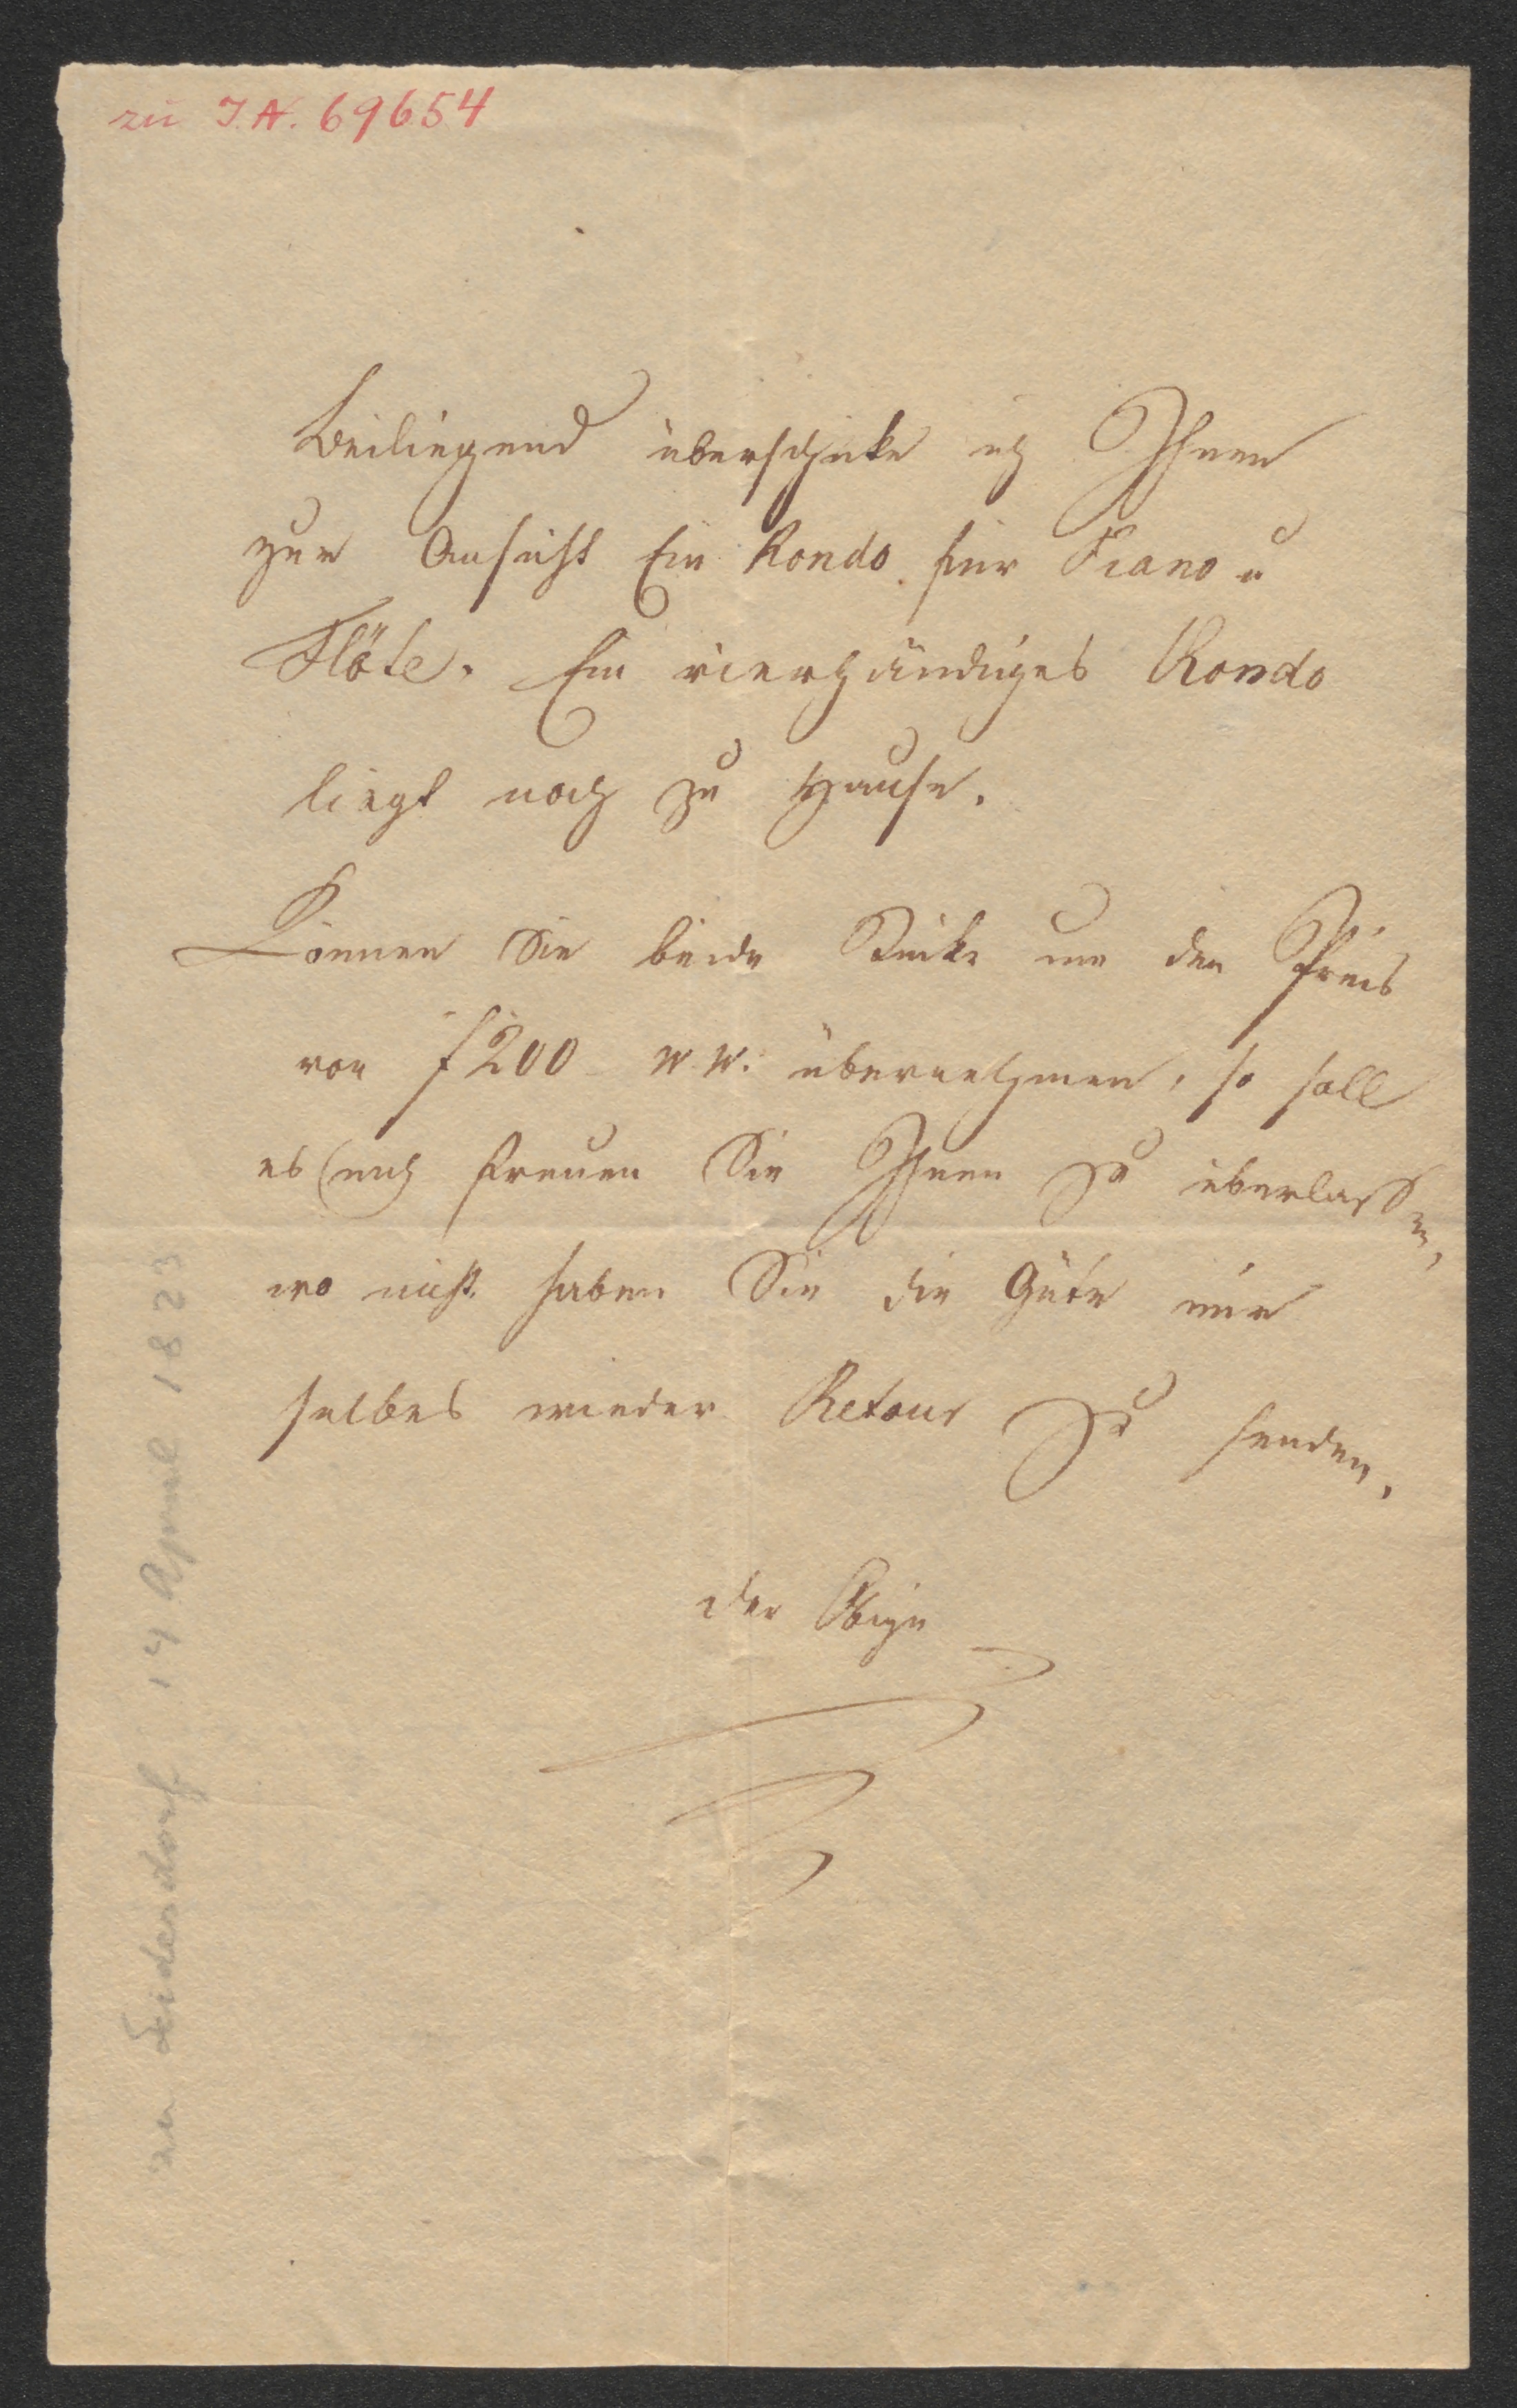 zu I.N. 69654
Beiliegend überschicke ich Ihnen
zur Ansicht Ein Rondo für Piano u
Flöte. Ein vierhändiges Rondo
liegt noch zu Hause.
Können Sie beide Stücke um den Preis
von f 200 W.W. übernehmen, so soll
es mich freuen Sie Ihnen zu überlassen,
wo nicht haben Sie die Güte mir
selbes wieder Retour zu senden.
der Obige
zu Leidesdorf 14 April 1823